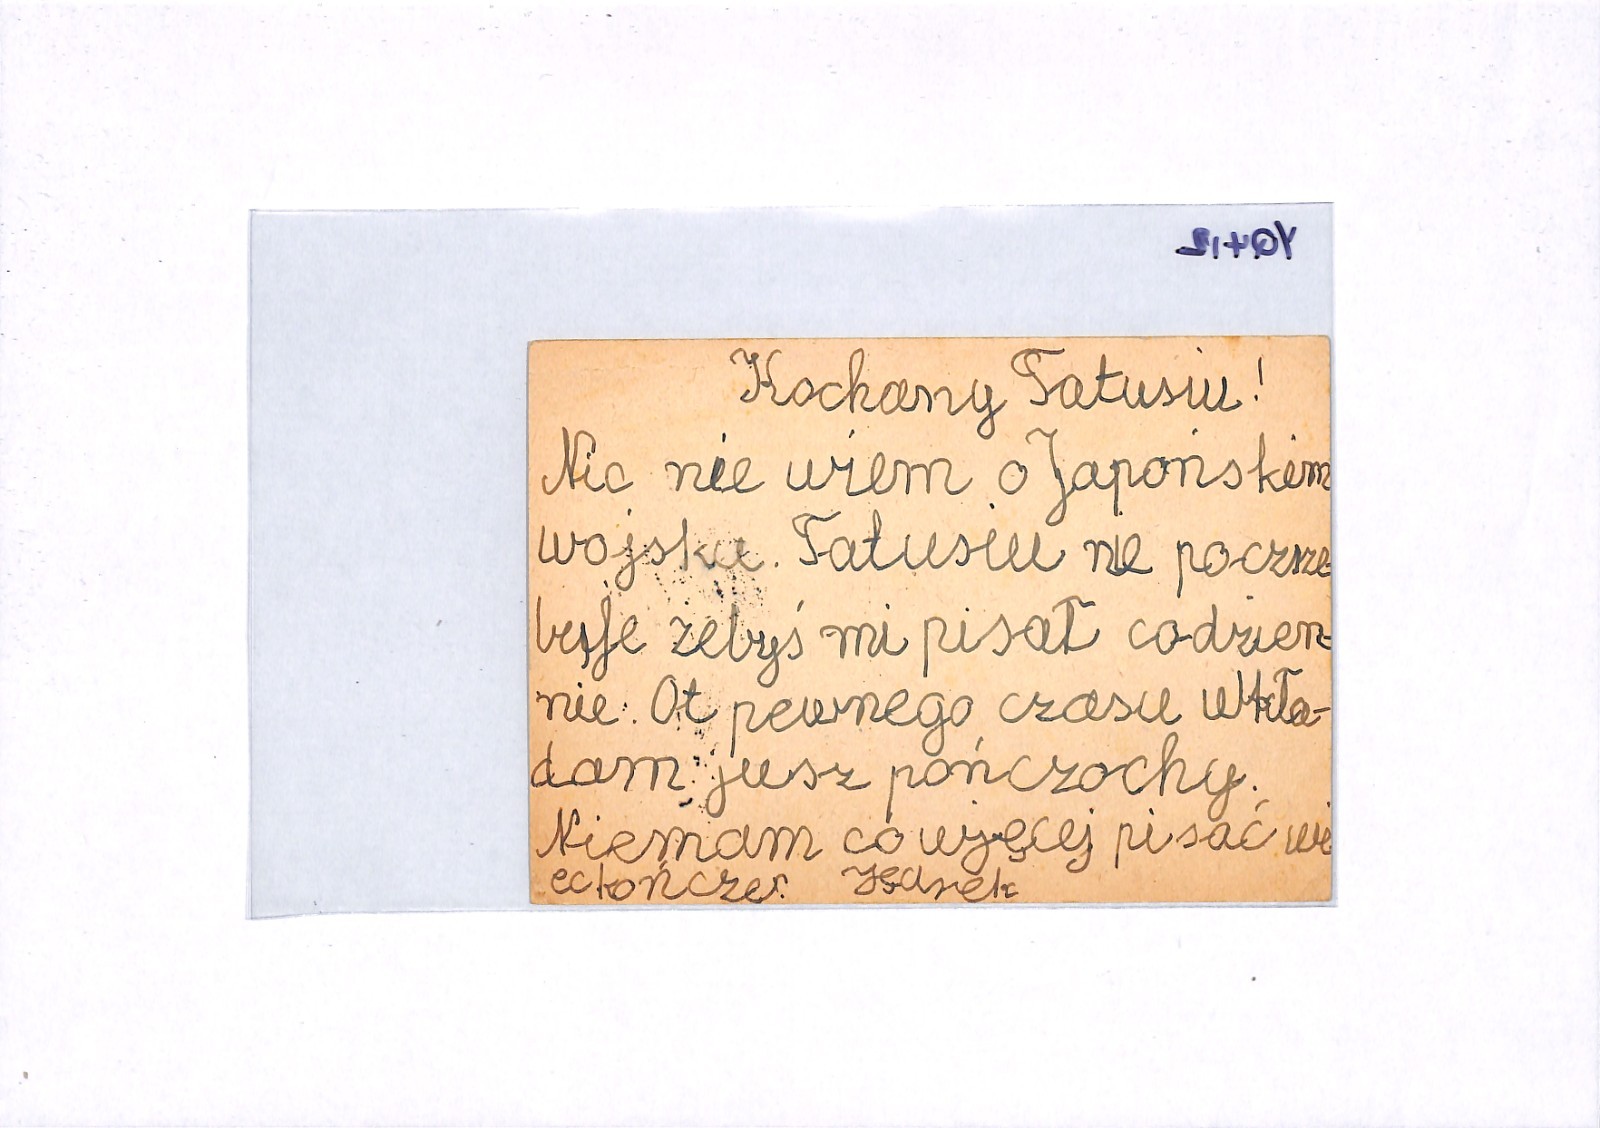 YQ412
Kochany Tatusiu!
Nic nie wiem o Japońskim
wojsku. Tatusiu nie poczsze-
buje żebyś mi pisał codzien-
nie. Ot pewnego czasu wkła-
dam jusz pończochy.
Niemam co więcej pisać wi
ec kończe. Jędrek